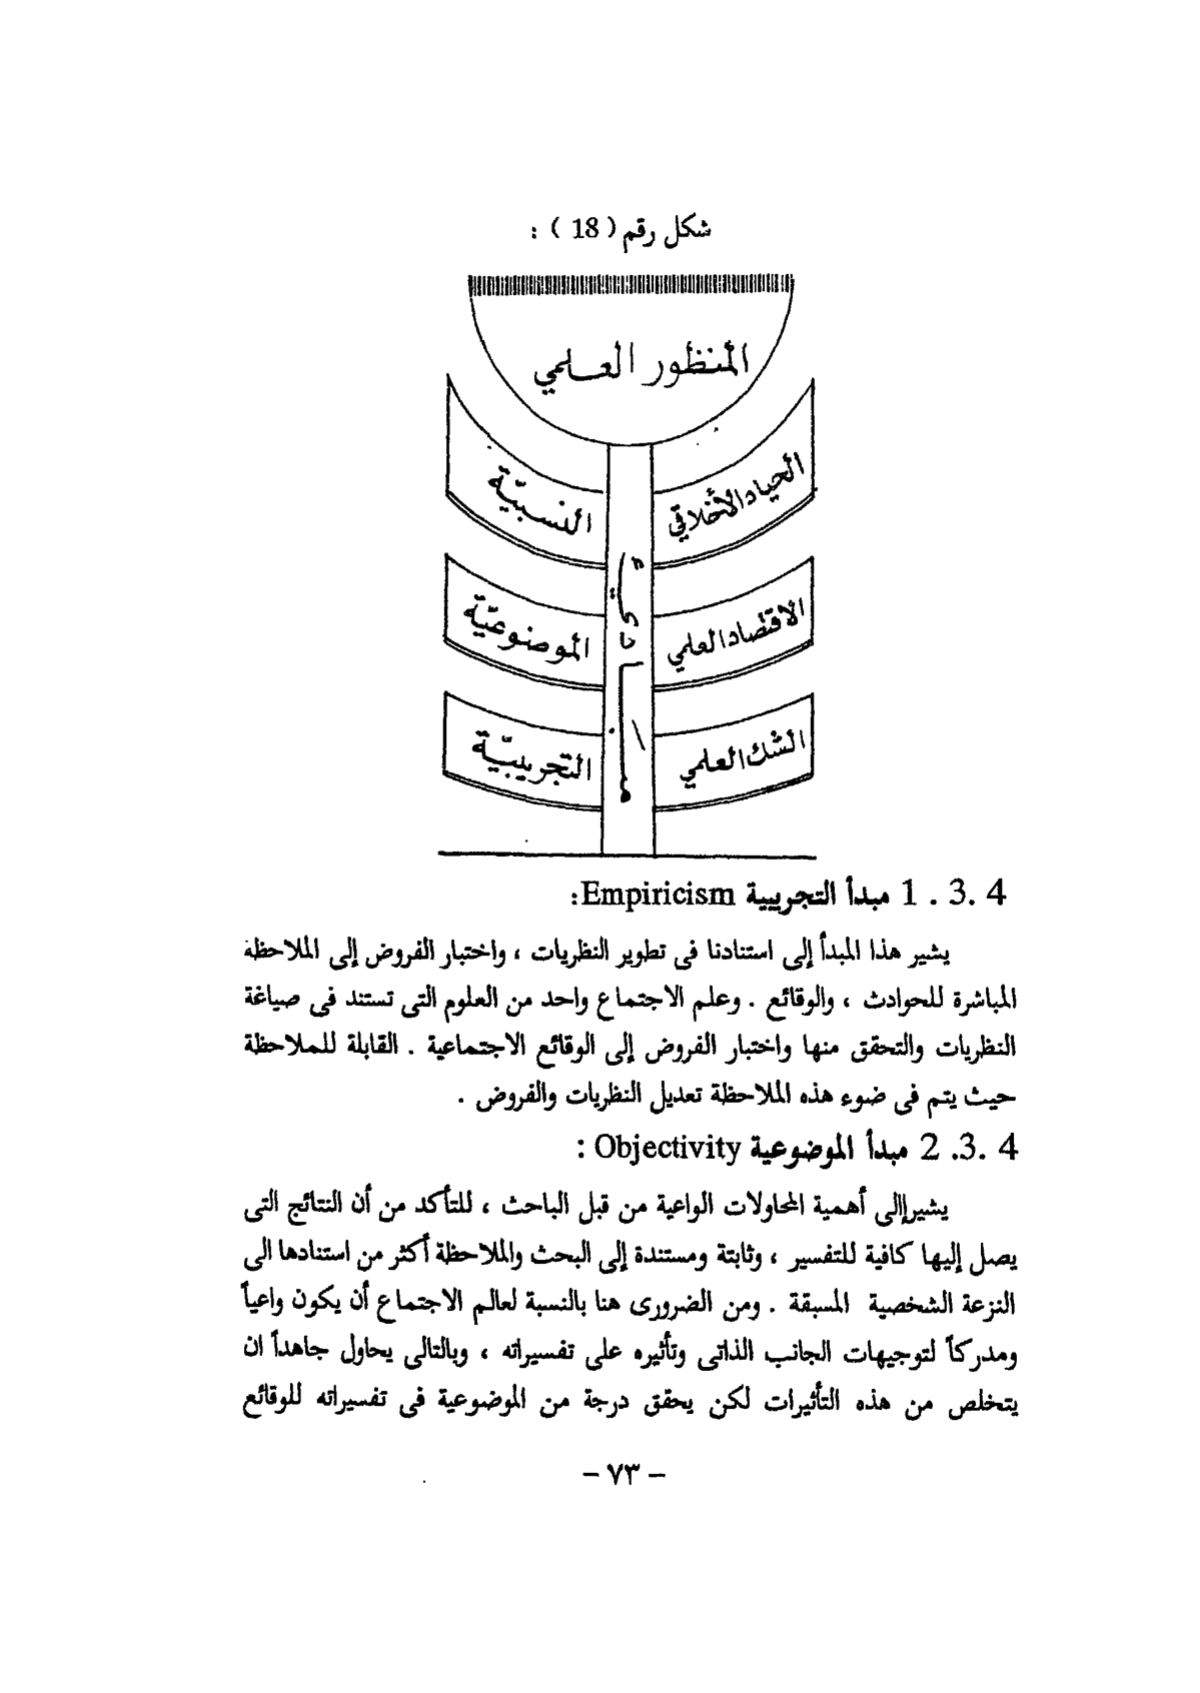 شكل رقم ( 18 ) :
المنظور العلمي
الحياد الأخلاقي
النسبيّة
الاقتصاد العلمي
الموضوعيّة
الشك العلمي
التجريبيّة
مبادىء
4 .3 . 1 مبدأ التجريبية Empiricism:
يشير هذا المبدأ إلى استنادنا فى تطوير النظريات ، واختبار الفروض إلى الملاحظة
المباشرة للحوادث ، والوقائع . وعلم الاجتماع واحد من العلوم التى تستند فى صياغة
النظريات والتحقق منها واختبار الفروض إلى الوقائع الاجتماعية . القابلة للملاحظة
حيث يتم فى ضوء هذه الملاحظة تعديل النظريات والفروض .
4 .3. 2 مبدأ الموضوعية Objectivity :
يشيرإالى أهمية المحاولات الواعية من قبل الباحث ، للتأكد من أن النتائج التى
يصل إليها كافية للتفسير ، وثابتة ومستندة إلى البحث والملاحظة أكثر من استنادها الى
النزعة الشخصية المسبقة . ومن الضرورى هنا بالنسبة لعالم الاجتماع أن يكون واعياً
ومدركاً لتوجيهات الجانب الذاتى وتأثيره على تفسيراته ، وبالتالى يحاول جاهداً ان
يتخلص من هذه التأثيرات لكن يحقق درجة من الموضوعية فى تفسيراته للوقائع
– ٧٣ –